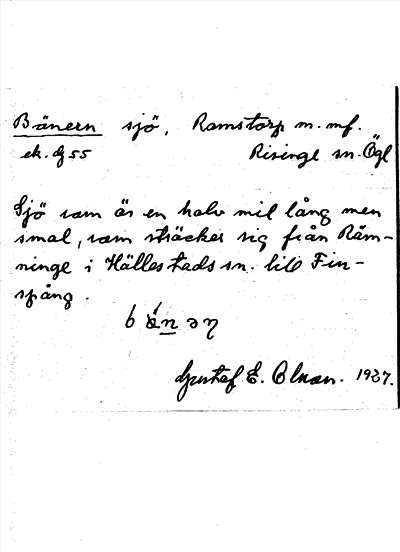 Bänern sjö, Ramstorp m. mf.
ek. bl 55 Risinge sn. Ögl
Sjö som är en halv mil lång men
smal, som sträcker sig från Räm-
ninge i Hällestads sn. till Fin-
spång.
Gustaf E. Olsson. 1937.